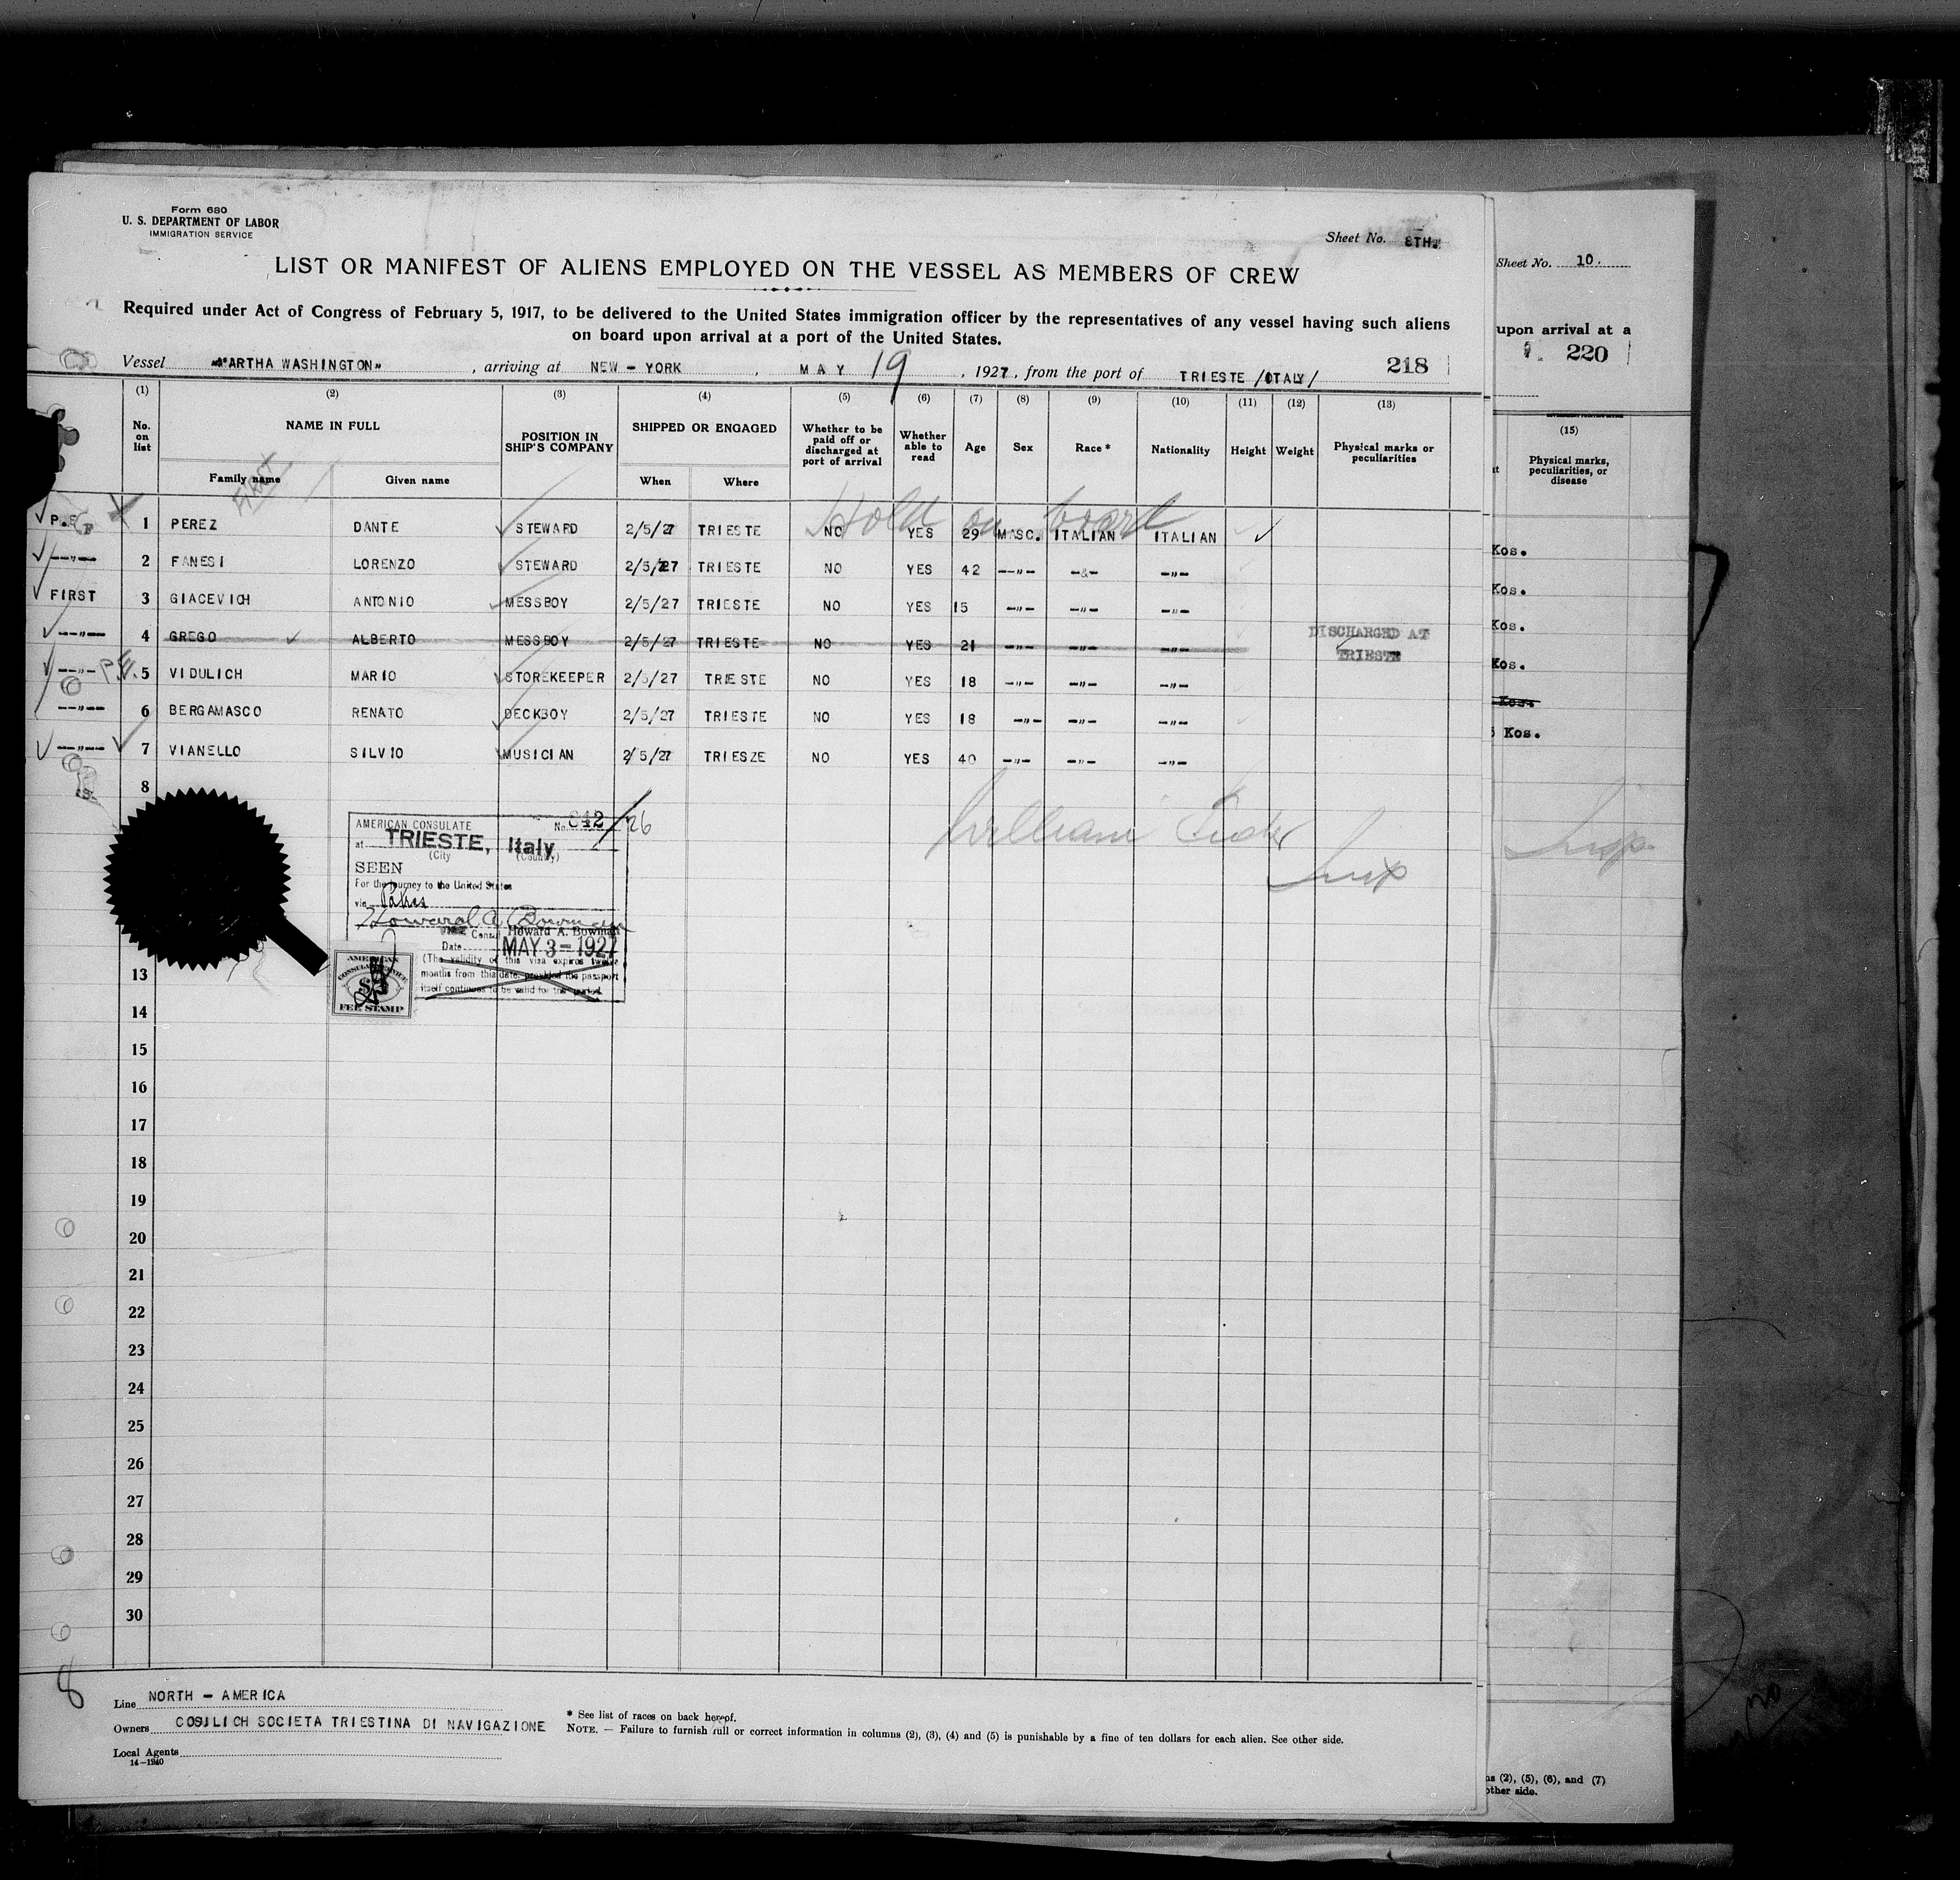 Form 680
U. S. DEPARTMENT OF LABOR
IMMIGRATION SERVICE
Sheet No. 8TH.
LIST OR MANIFEST OF ALIENS EMPLOYED ON THE VESSEL AS MEMBERS OF CREW
Required under Act of Congress of February 5, 1917, to be delivered to the United States immigration officer by the representatives of any vessel having such aliens
on board upon arrival at a port of the United States.
Vessel "MARTHA WASHINGTON" , arriving at NEW - YORK , MAY 19 , 1927, from the port of TRIESTE /ITALY/ 218
(1) (2) (3) (4) (5) (6) (7) (8) (9) (10) (11) (12) (13)
No. on list NAME IN FULL POSITION IN SHIP'S COMPANY SHIPPED OR ENGAGED Whether to be paid off or discharged at port of arrival Whether able to read Age Sex Race * Nationality Height Weight Physical marks or peculiarities
Family name Given name When Where
FIRST
Hold on board
P.E 1 PEREZ DANTE STEWARD 2/5/27 TRIESTE NO YES 29 MASC. ITALIAN ITALIAN
—"— 2 FANESI LORENZO STEWARD 2/5/27 TRIESTE NO YES 42 —"— -&- —"—
FIRST 3 GIACEVICH ANTONIO MESSBOY 2/5/27 TRIESTE NO YES 15 —"— —"— —"—
—"— 4 GREGO ALBERTO MESSBOY 2/5/27 TRIESTE NO YES 21 —"— —"— —"— DISCHARGED AT TRIESTE
—"— P.E. 5 VIDULICH MARIO STOREKEEPER 2/5/27 TRIESTE NO YES 18 —"— —"— —"—
—"— 6 BERGAMASCO RENATO DECKBOY 2/5/27 TRIESTE NO YES 18 —"— —"— —"—
—"— 7 VIANELLO SILVIO MUSICIAN 2/5/27 TRIESZE NO YES 40 —"— —"— —"—
8
William
AMERICAN CONSULATE No. 842/26
at TRIESTE, Italy
(City (Country)
SEEN
For the journey to the United States
via Patras
Howard A. Bowman
Consul Howard A. Bowman
Date MAY 3 - 1927
(The validity of this visa expires twelve
months from this date, provided the passport
itself continues to be valid for that period.
AMERICAN
CONSULAR SERVICE
FEE STAMP
13
14
15
16
17
18
19
20
21
22
23
24
25
26
27
28
29
30
8
Line NORTH - AMERICA
Owners COSULICH SOCIETA TRIESTINA DI NAVIGAZIONE
Local Agents
14-1240
* See list of races on back hereof.
NOTE. — Failure to furnish full or correct information in columns (2), (3), (4) and (5) is punishable by a fine of ten dollars for each alien. See other side.
Sheet No. 10.
upon arrival at a
220
(15)
Physical marks, peculiarities, or disease
Kos.
Kos.
Kos.
Kos.
Kos.
Kos.
Insp.
(2), (5), (6), and (7)
other side.